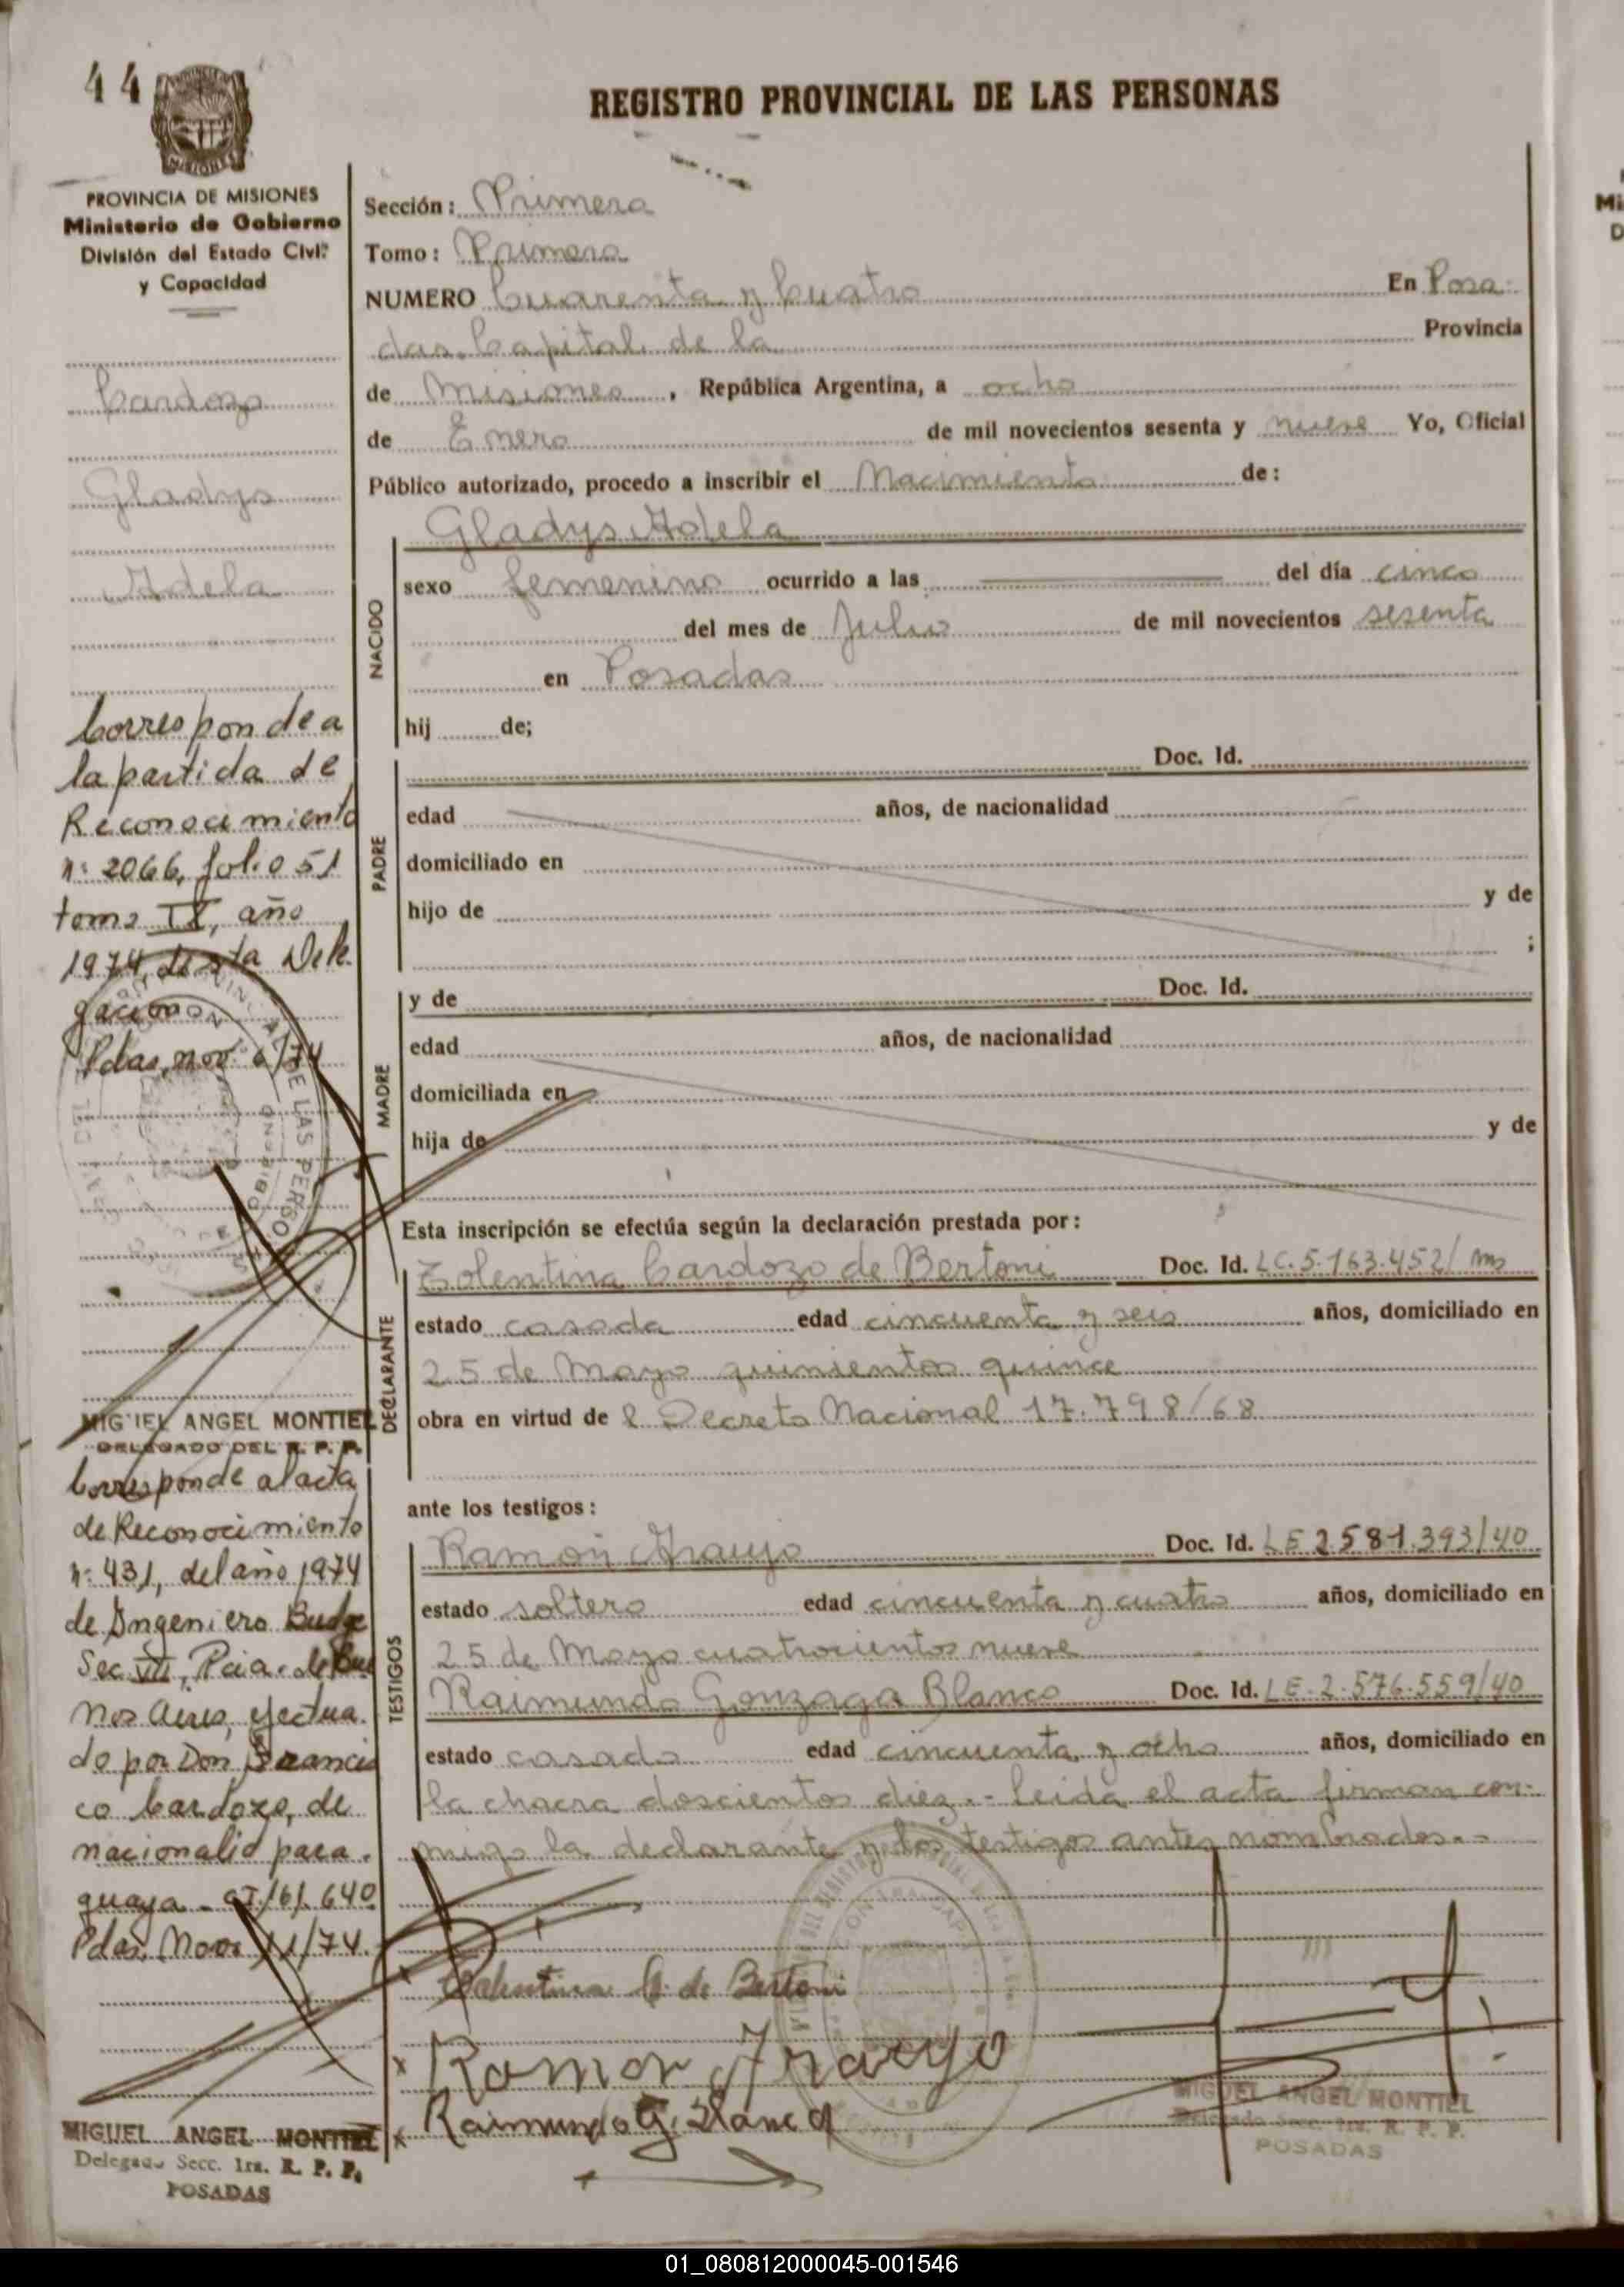 44
REGISTRO PROVINCIAL DE LAS PERSONAS
MISIONES
PROVINCIA DE MISIONES
Ministerio de Gobierno
División del Estado Civil
y Capacidad
Cardozo
Gladys
Adela
Corresponde a
la partida de
Reconocimiento
nº 2066, folio 51
tomo IX, año
1974, de esta Dele
gación
Pdas, nov. 6/74
MIGUEL ANGEL MONTIEL
DELEGADO DEL R. P. P.
Corresponde al acta
de Reconocimiento
nº 431, del año 1974
de Ingeniero Budge
Sec VII, Pcia. de Bue
nos Aires, efectua
do por Don Francis
co Cardozo, de
nacionalid para.
guaya - CI. 161.640
Pdas. Nov. 11/74.
MIGUEL ANGEL MONTIEL
Delegado Secc. 1ra. R. P. P.
POSADAS
Sección: Primera
Tomo: Primero
NUMERO Cuarenta y Cuatro En Posa-
das. Capital de la Provincia
de Misiones, República Argentina, a ocho
de Enero de mil novecientos sesenta y nueve Yo, Oficial
Público autorizado, procedo a inscribir el Nacimiento de:
Gladys Adela
NACIDO
sexo femenino ocurrido a las del día cinco
del mes de Julio de mil novecientos sesenta
en Posadas
hij de;
PADRE
Doc. Id.
edad años, de nacionalidad
domiciliado en
hijo de y de
;
MADRE
y de Doc. Id.
edad años, de nacionalidad
domiciliada en
hija de y de
Esta inscripción se efectúa según la declaración prestada por:
DECLARANTE
Tolentina Cardozo de Bertoni Doc. Id. LC. 5.163.452/
estado casada edad cincuenta y seis años, domiciliado en
25 de Mayo quinientos quince
obra en virtud de l Decreto Nacional 17.798/68
ante los testigos:
TESTIGOS
Ramón Araujo Doc. Id. LE 2.581.393/40
estado soltero edad cincuenta y cuatro años, domiciliado en
25 de Mayo cuatrocientos nueve
Raimundo Gonzaga Blanco Doc. Id. LE. 2.576.559/40
estado casado edad cincuenta y ocho años, domiciliado en
la chacra doscientos diez.- Leida el acta firman con-
migo la declarante y los testigos antes nombrados.-
Tolentina C. de Bertoni
Ramon Araujo
Raimundo G. Blanco
MIGUEL ANGEL MONTIEL
Delegado Secc. 1ra. R. P. P.
POSADAS
01_080812000045-001546